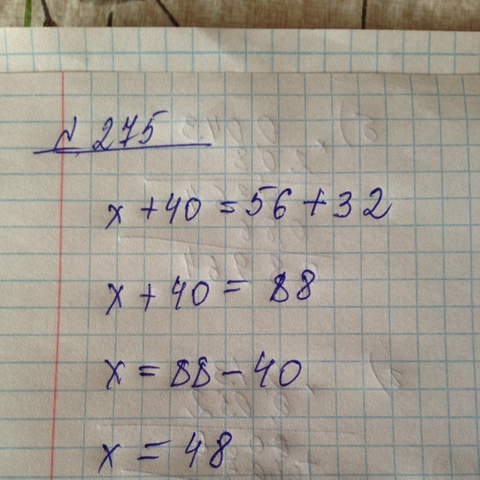 № 275
x + 40 = 56 + 32
x + 40 = 88
x = 88 - 40
x = 48